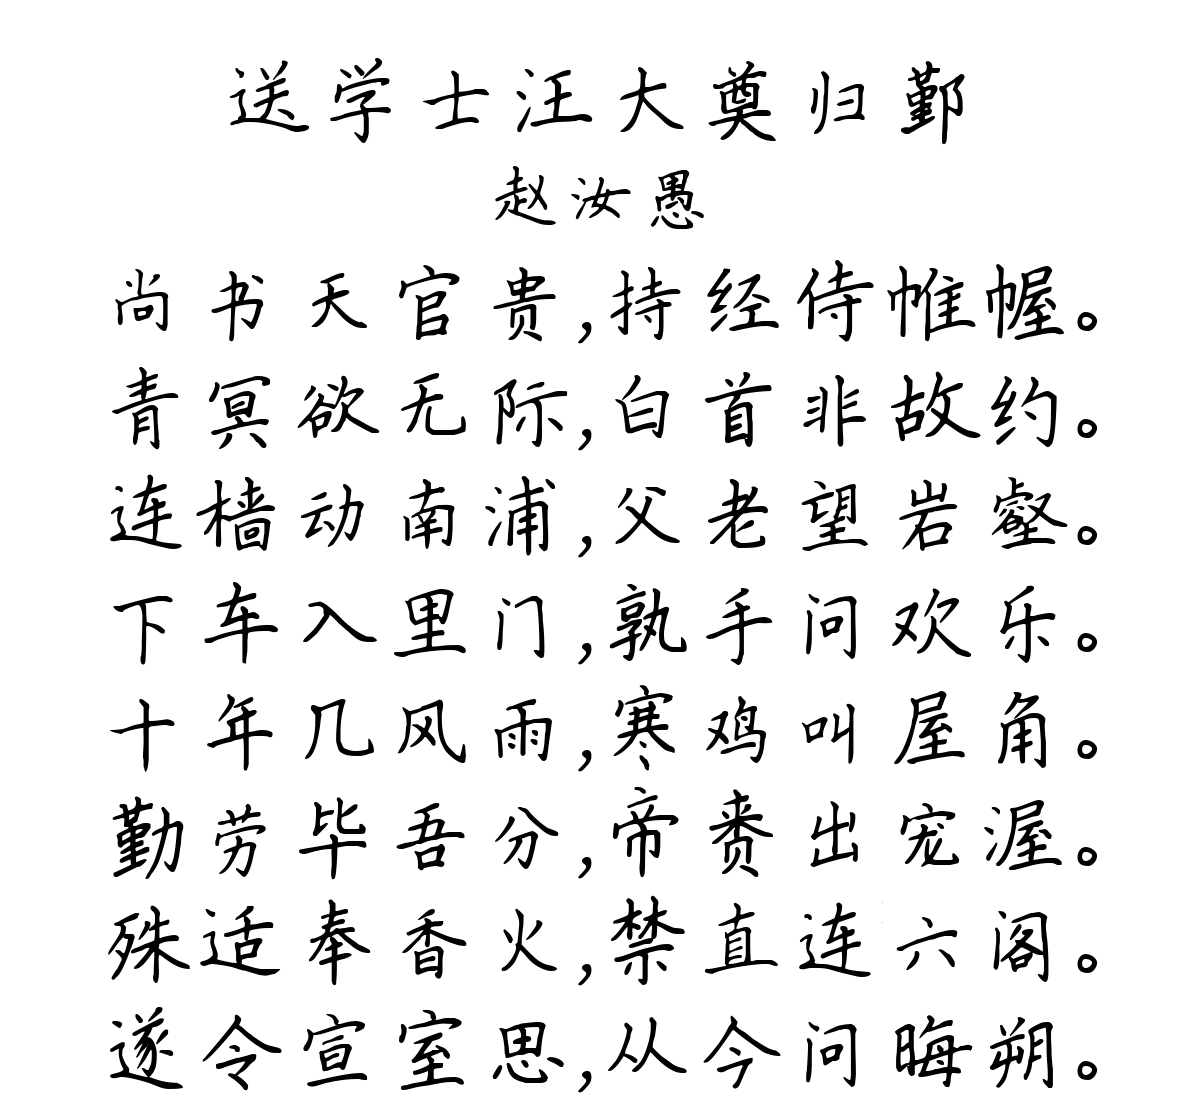 送学士汪大奠归鄞
赵汝愚
尚书天官贵,持经侍帷幄。
青冥欲无际,白首非故约。
连樯动南浦,父老望岩壑。
下车入里门,孰手问欢乐。
十年几风雨,寒鸡叫屋角。
勤劳毕吾分,帝赉出宠渥。
殊适奉香火,禁直连六阁。
遂令宣室思,从今问晦朔。